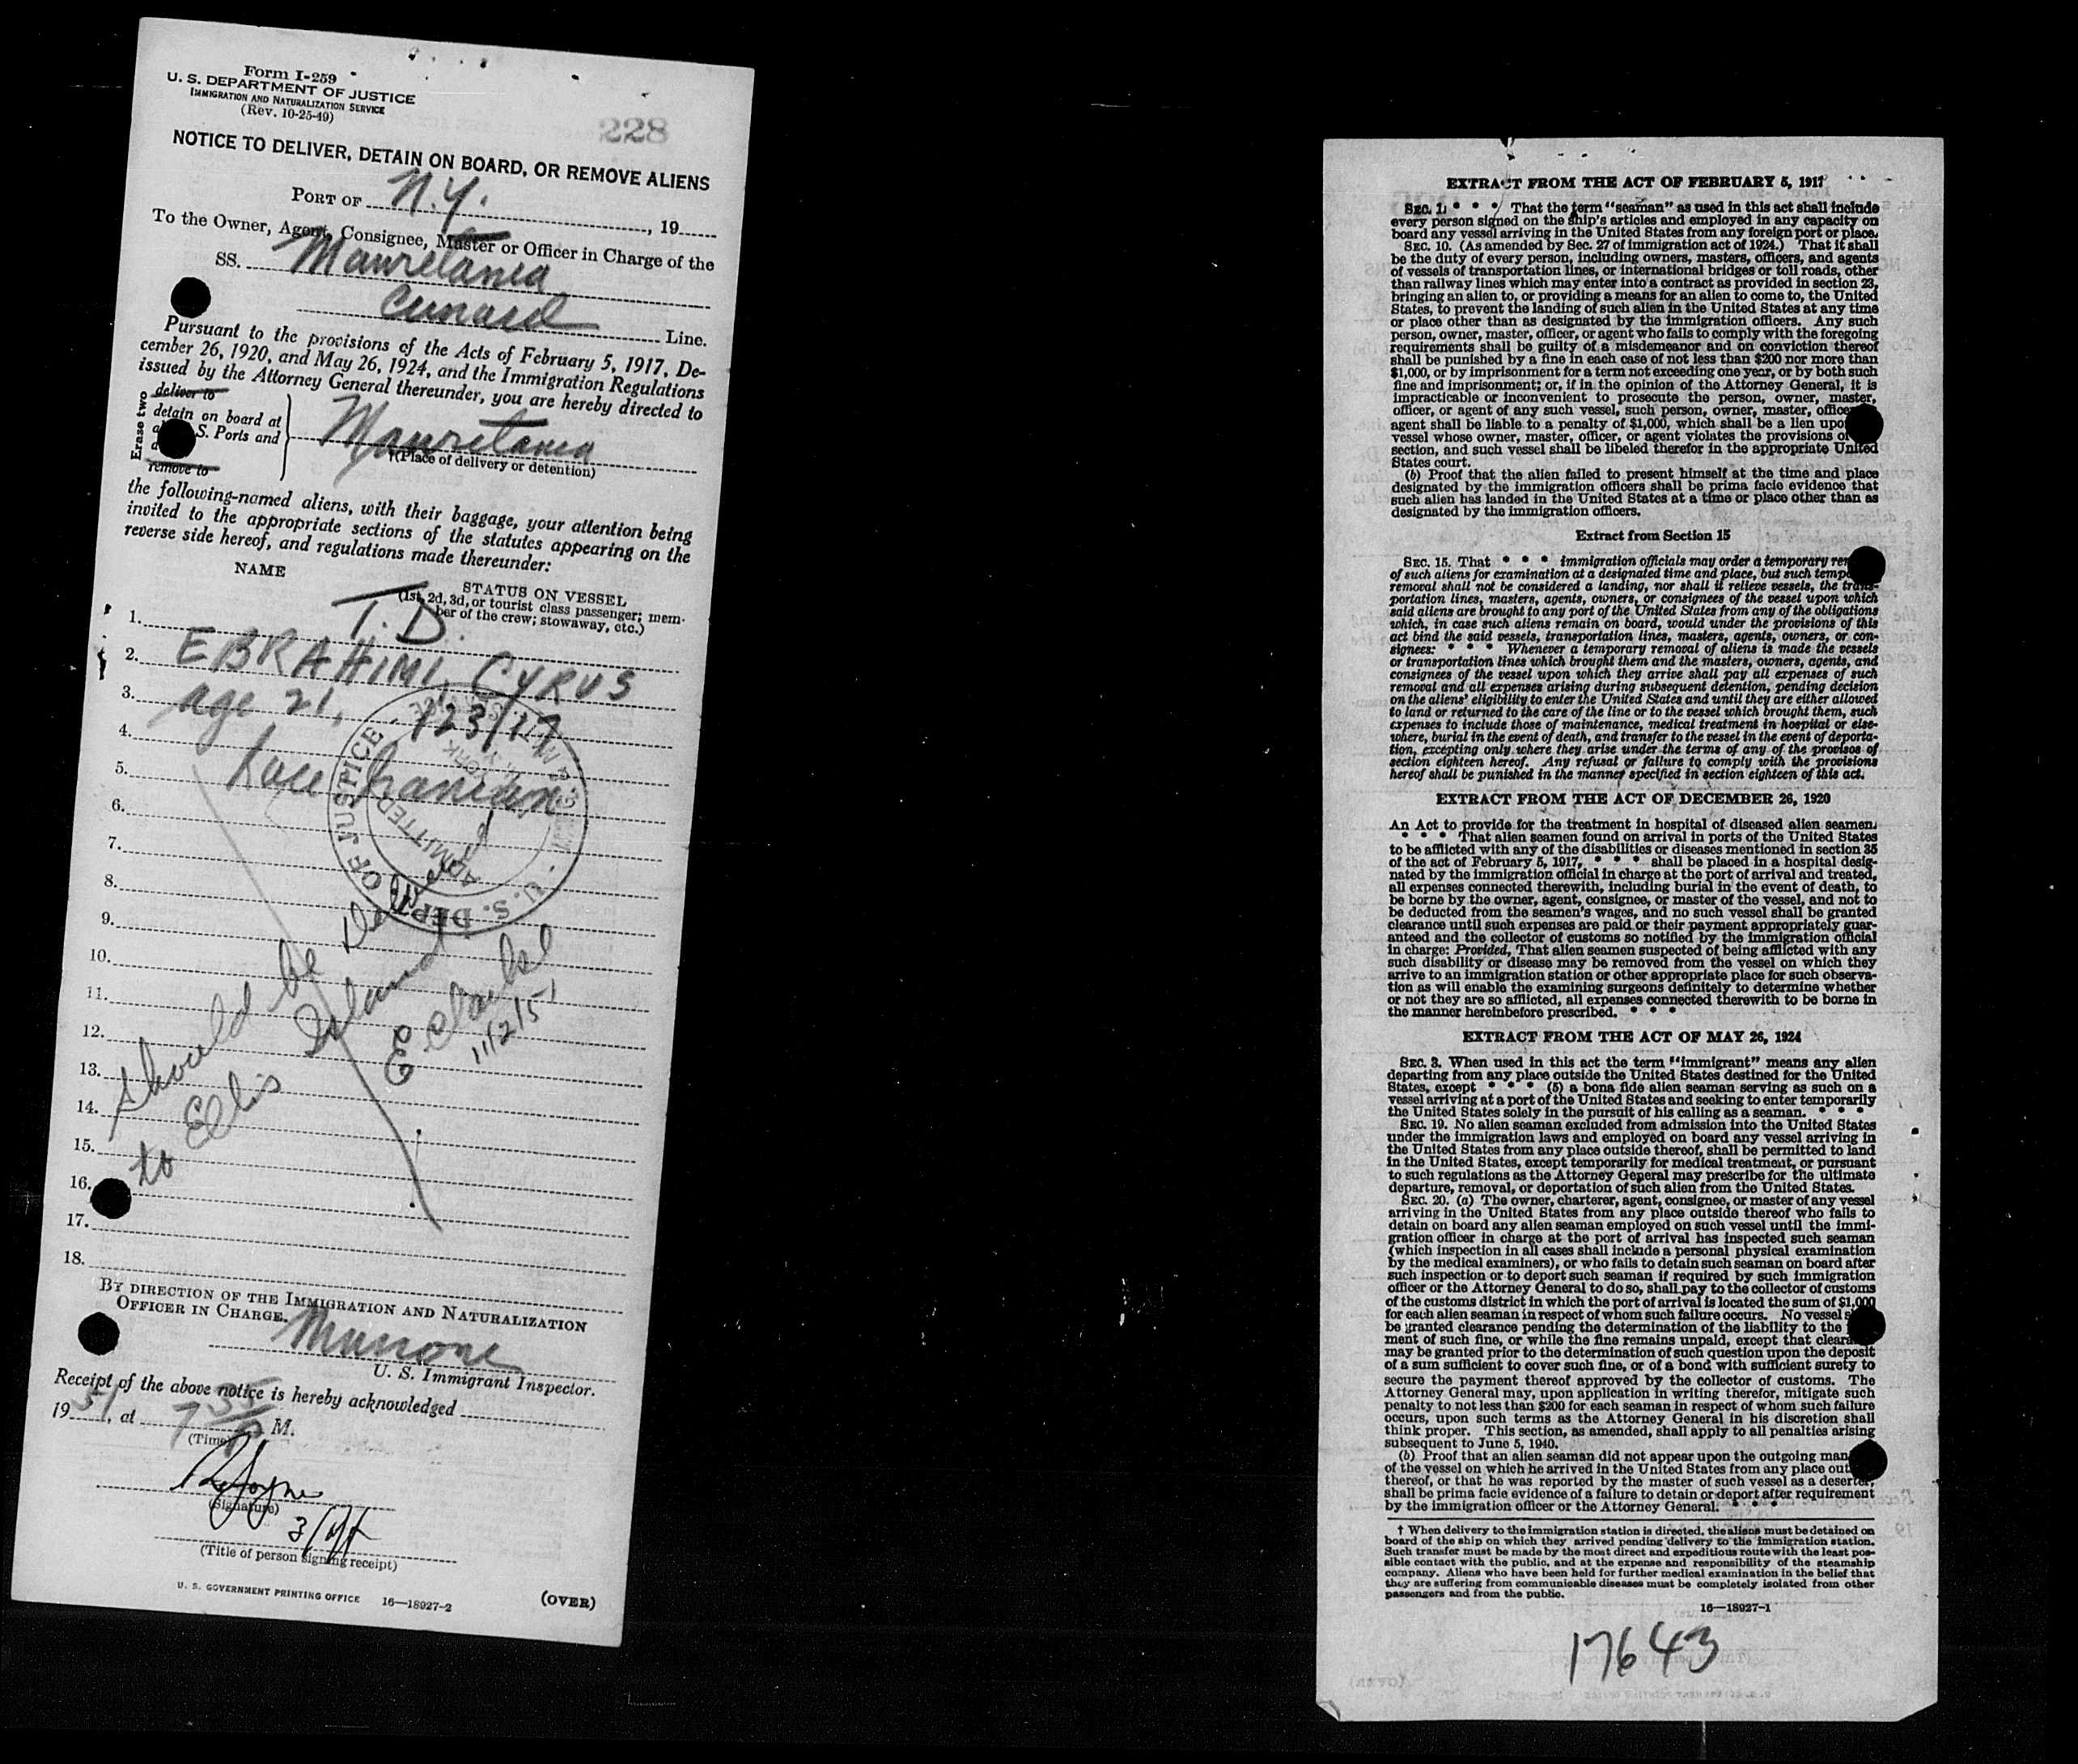 Form I-259
U. S. DEPARTMENT OF JUSTICE
IMMIGRATION AND NATURALIZATION SERVICE
(Rev. 10-25-49)
228
NOTICE TO DELIVER, DETAIN ON BOARD, OR REMOVE ALIENS
PORT OF N.Y. , 19
To the Owner, Agent, Consignee, Master or Officer in Charge of the
SS. Mauretania
Cunard Line.
Pursuant to the provisions of the Acts of February 5, 1917, De-
cember 26, 1920, and May 26, 1924, and the Immigration Regulations
issued by the Attorney General thereunder, you are hereby directed to
Erase two
deliver to
detain on board at
S. Ports and
remove to
Mauretania
†(Place of delivery or detention)
the following-named aliens, with their baggage, your attention being
invited to the appropriate sections of the statutes appearing on the
reverse side hereof, and regulations made thereunder:
NAME
STATUS ON VESSEL
(1st, 2d, 3d, or tourist class passenger; mem-
ber of the crew; stowaway, etc.)
1. T.D.
2. EBRAHIMI, CYRUS
3. age 21, 123/17
4.
5. Race Iranian
6.
7.
8.
9.
10.
11.
12.
13.
14.
15.
16.
17.
18.
U. S. DEPT. OF JUSTICE
ADMITTED
Should be Delivered
to Ellis Island
11/2/51
BY DIRECTION OF THE IMMIGRATION AND NATURALIZATION
OFFICER IN CHARGE.
U. S. Immigrant Inspector.
Receipt of the above notice is hereby acknowledged
1951, at 7 35 P M.
(Time)
(Signature)
(Title of person signing receipt)
U. S. GOVERNMENT PRINTING OFFICE 16—18927-2 (OVER)
EXTRACT FROM THE ACT OF FEBRUARY 5, 1917
SEC. 1. * * * That the term "seaman" as used in this act shall include
every person signed on the ship's articles and employed in any capacity on
board any vessel arriving in the United States from any foreign port or place.
SEC. 10. (As amended by Sec. 27 of immigration act of 1924.) That it shall
be the duty of every person, including owners, masters, officers, and agents
of vessels of transportation lines, or international bridges or toll roads, other
than railway lines which may enter into a contract as provided in section 23,
bringing an alien to, or providing a means for an alien to come to, the United
States, to prevent the landing of such alien in the United States at any time
or place other than as designated by the immigration officers. Any such
person, owner, master, officer, or agent who fails to comply with the foregoing
requirements shall be guilty of a misdemeanor and on conviction thereof
shall be punished by a fine in each case of not less than $200 nor more than
$1,000, or by imprisonment for a term not exceeding one year, or by both such
fine and imprisonment; or, if in the opinion of the Attorney General, it is
impracticable or inconvenient to prosecute the person, owner, master,
officer, or agent of any such vessel, such person, owner, master, office
agent shall be liable to a penalty of $1,000, which shall be a lien upo
vessel whose owner, master, officer, or agent violates the provisions of
section, and such vessel shall be libeled therefor in the appropriate United
States court.
(b) Proof that the alien failed to present himself at the time and place
designated by the immigration officers shall be prima facie evidence that
such alien has landed in the United States at a time or place other than as
designated by the immigration officers.
Extract from Section 15
SEC. 15. That * * * immigration officials may order a temporary rem
of such aliens for examination at a designated time and place, but such tempo
removal shall not be considered a landing, nor shall it relieve vessels, the trans-
portation lines, masters, agents, owners, or consignees of the vessel upon which
said aliens are brought to any port of the United States from any of the obligations
which, in case such aliens remain on board, would under the provisions of this
act bind the said vessels, transportation lines, masters, agents, owners, or con-
signees: * * * Whenever a temporary removal of aliens is made the vessels
or transportation lines which brought them and the masters, owners, agents, and
consignees of the vessel upon which they arrive shall pay all expenses of such
removal and all expenses arising during subsequent detention, pending decision
on the aliens' eligibility to enter the United States and until they are either allowed
to land or returned to the care of the line or to the vessel which brought them, such
expenses to include those of maintenance, medical treatment in hospital or else-
where, burial in the event of death, and transfer to the vessel in the event of deporta-
tion, excepting only where they arise under the terms of any of the provisos of
section eighteen hereof. Any refusal or failure to comply with the provisions
hereof shall be punished in the manner specified in section eighteen of this act.
EXTRACT FROM THE ACT OF DECEMBER 26, 1920
An Act to provide for the treatment in hospital of diseased alien seamen.
* * * That alien seamen found on arrival in ports of the United States
to be afflicted with any of the disabilities or diseases mentioned in section 35
of the act of February 5, 1917, * * * shall be placed in a hospital desig-
nated by the immigration official in charge at the port of arrival and treated,
all expenses connected therewith, including burial in the event of death, to
be borne by the owner, agent, consignee, or master of the vessel, and not to
be deducted from the seamen's wages, and no such vessel shall be granted
clearance until such expenses are paid or their payment appropriately guar-
anteed and the collector of customs so notified by the immigration official
in charge: Provided, That alien seamen suspected of being afflicted with any
such disability or disease may be removed from the vessel on which they
arrive to an immigration station or other appropriate place for such observa-
tion as will enable the examining surgeons definitely to determine whether
or not they are so afflicted, all expenses connected therewith to be borne in
the manner hereinbefore prescribed. * * *
EXTRACT FROM THE ACT OF MAY 26, 1924
SEC. 3. When used in this act the term "immigrant" means any alien
departing from any place outside the United States destined for the United
States, except * * * (5) a bona fide alien seaman serving as such on a
vessel arriving at a port of the United States and seeking to enter temporarily
the United States solely in the pursuit of his calling as a seaman. * * *
SEC. 19. No alien seaman excluded from admission into the United States
under the immigration laws and employed on board any vessel arriving in
the United States from any place outside thereof, shall be permitted to land
in the United States, except temporarily for medical treatment, or pursuant
to such regulations as the Attorney General may prescribe for the ultimate
departure, removal, or deportation of such alien from the United States.
SEC. 20. (a) The owner, charterer, agent, consignee, or master of any vessel
arriving in the United States from any place outside thereof who fails to
detain on board any alien seaman employed on such vessel until the immi-
gration officer in charge at the port of arrival has inspected such seaman
(which inspection in all cases shall include a personal physical examination
by the medical examiners), or who fails to detain such seaman on board after
such inspection or to deport such seaman if required by such immigration
officer or the Attorney General to do so, shall pay to the collector of customs
of the customs district in which the port of arrival is located the sum of $1,000
for each alien seaman in respect of whom such failure occurs. No vessel s
be granted clearance pending the determination of the liability to the
ment of such fine, or while the fine remains unpaid, except that clear
may be granted prior to the determination of such question upon the deposit
of a sum sufficient to cover such fine, or of a bond with sufficient surety to
secure the payment thereof approved by the collector of customs. The
Attorney General may, upon application in writing therefor, mitigate such
penalty to not less than $200 for each seaman in respect of whom such failure
occurs, upon such terms as the Attorney General in his discretion shall
think proper. This section, as amended, shall apply to all penalties arising
subsequent to June 5, 1940.
(b) Proof that an alien seaman did not appear upon the outgoing man
of the vessel on which he arrived in the United States from any place out
thereof, or that he was reported by the master of such vessel as a deserter,
shall be prima facie evidence of a failure to detain or deport after requirement
by the immigration officer or the Attorney General. * * *
† When delivery to the immigration station is directed, the aliens must be detained on
board of the ship on which they arrived pending delivery to the immigration station.
Such transfer must be made by the most direct and expeditious route with the least pos-
sible contact with the public, and at the expense and responsibility of the steamship
company. Aliens who have been held for further medical examination in the belief that
they are suffering from communicable diseases must be completely isolated from other
passengers and from the public.
16—18927-1
17643